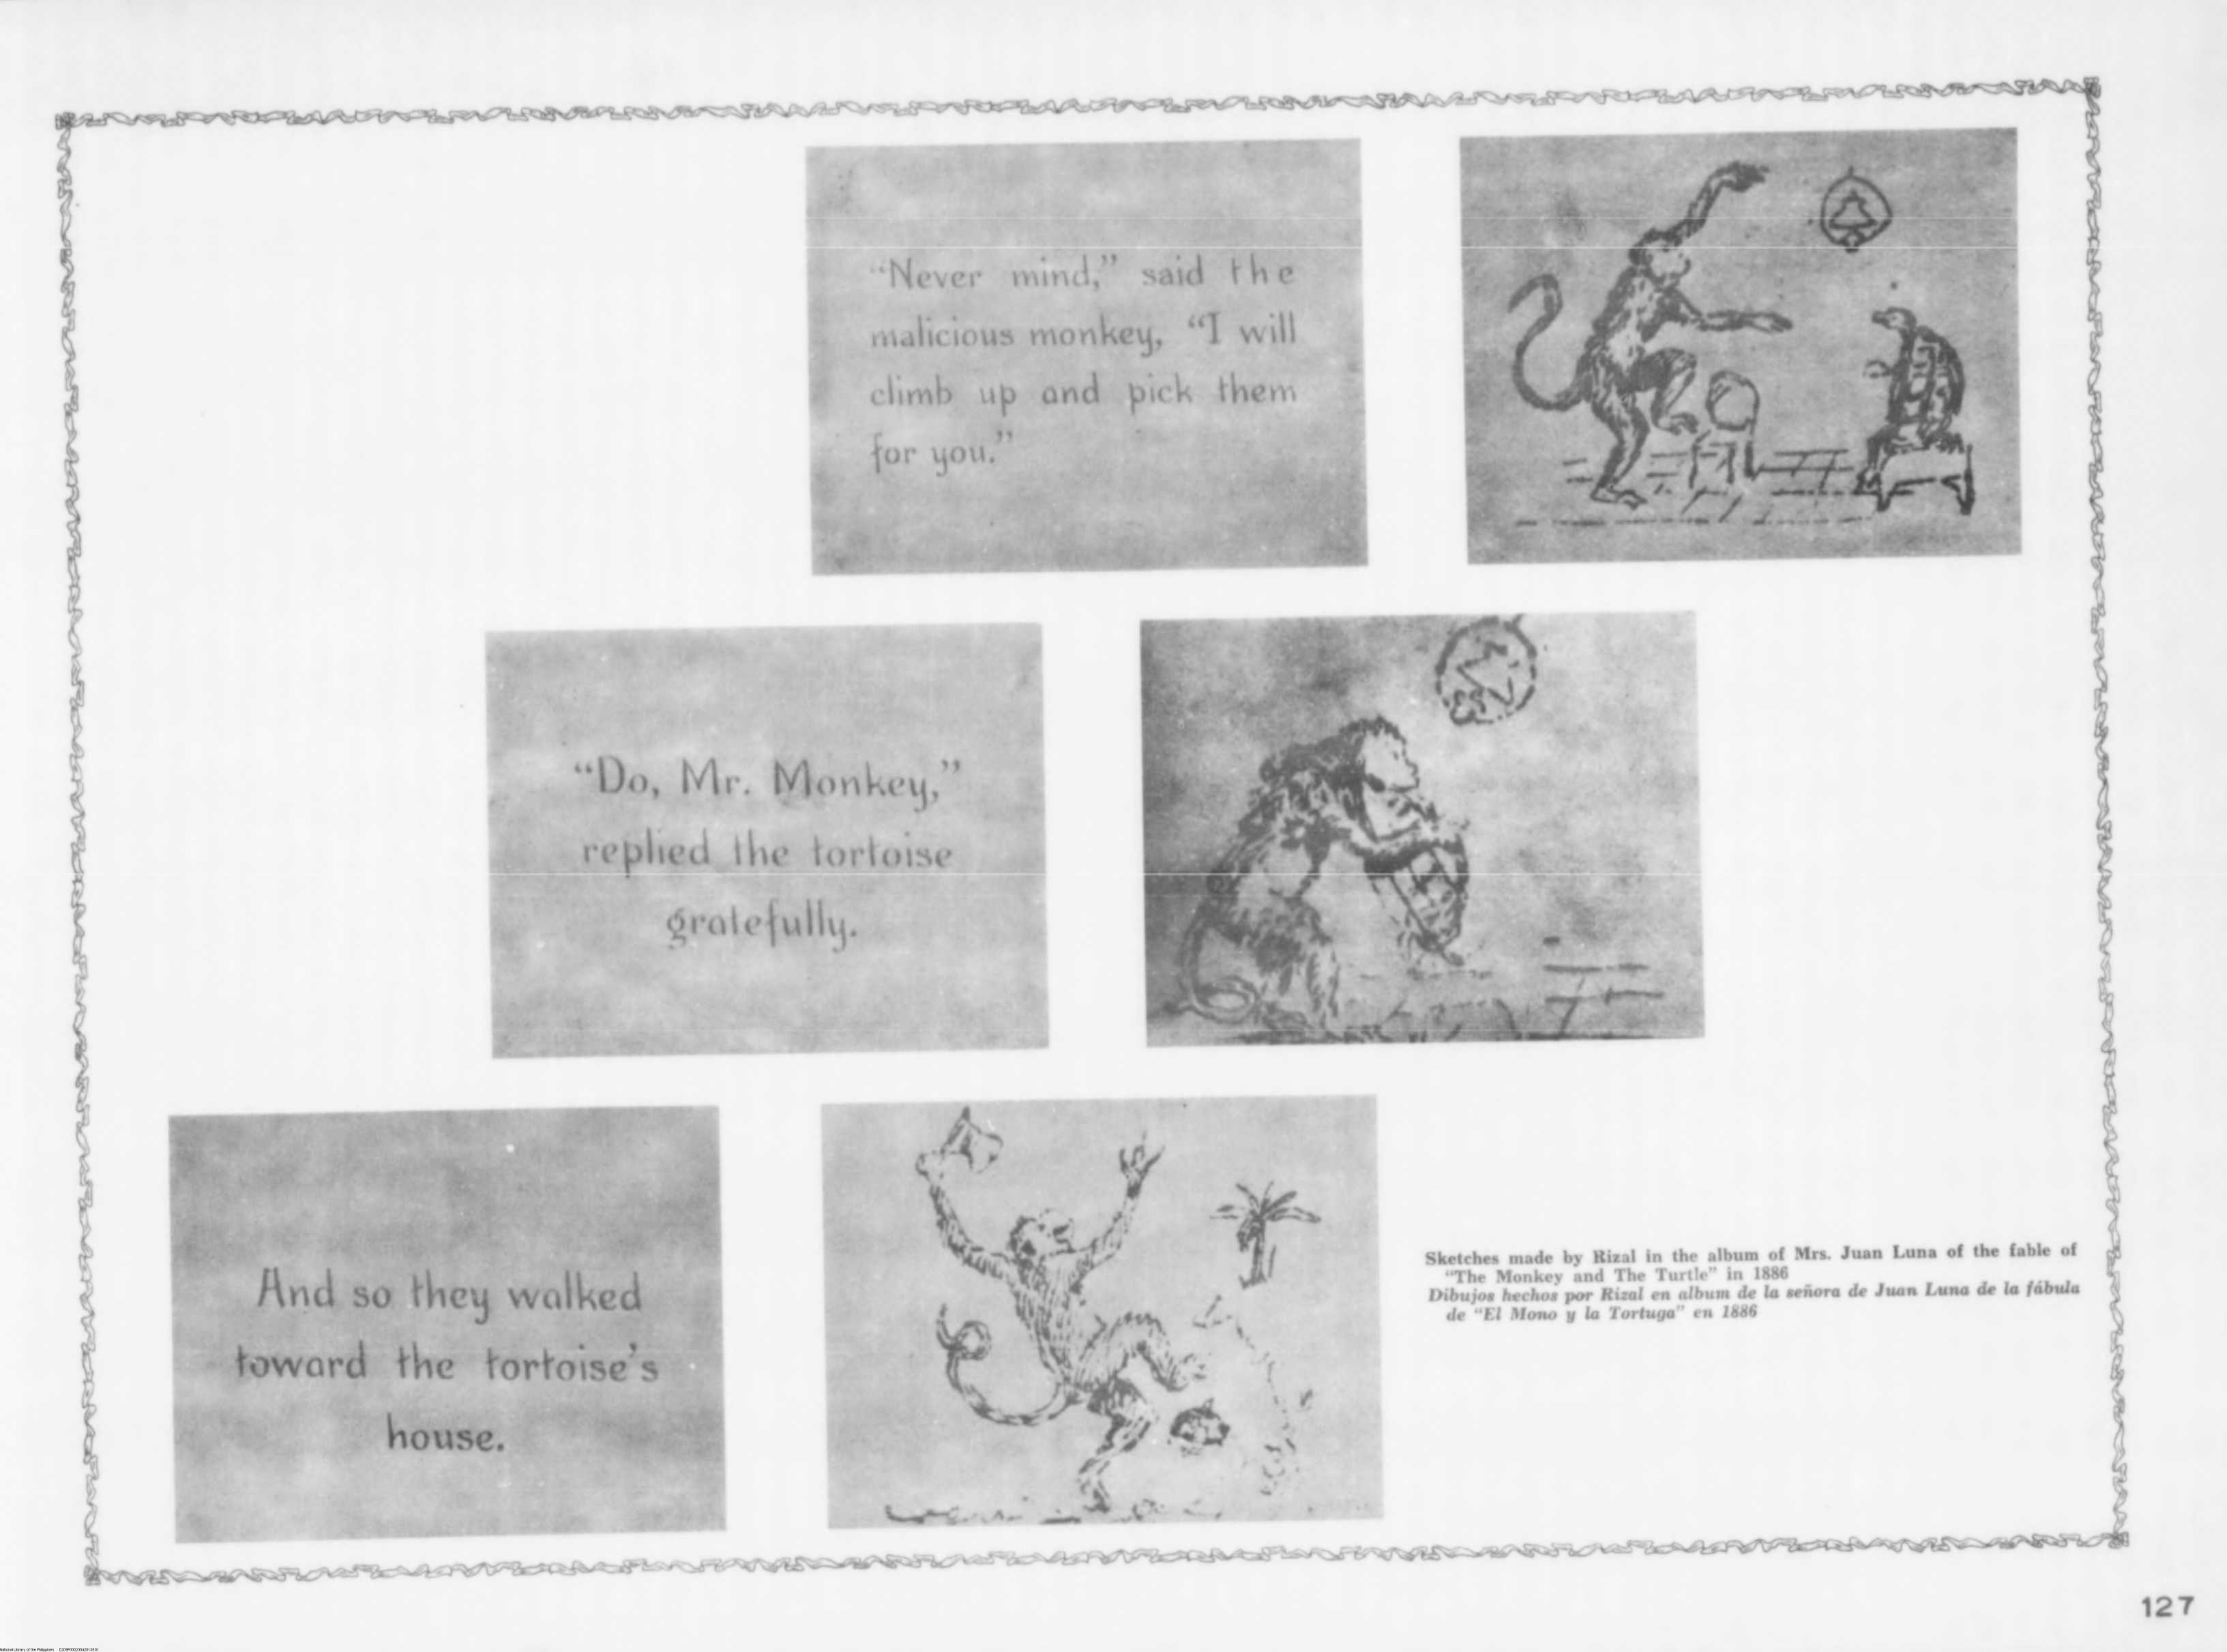 “Never mind,” said the
malicious monkey, “I will
climb up and pick them
for you.”
“Do, Mr. Monkey,”
replied the tortoise
gratefully.
And so they walked
toward the tortoise's
house.
Sketches made by Rizal in the album of Mrs. Juan Luna of the fable of
“The Monkey and The Turtle” in 1886
Dibujos hechos por Rizal en album de la señora de Juan Luna de la fábula
de “El Mono y la Tortuga” en 1886
127
National Library of the Philippines